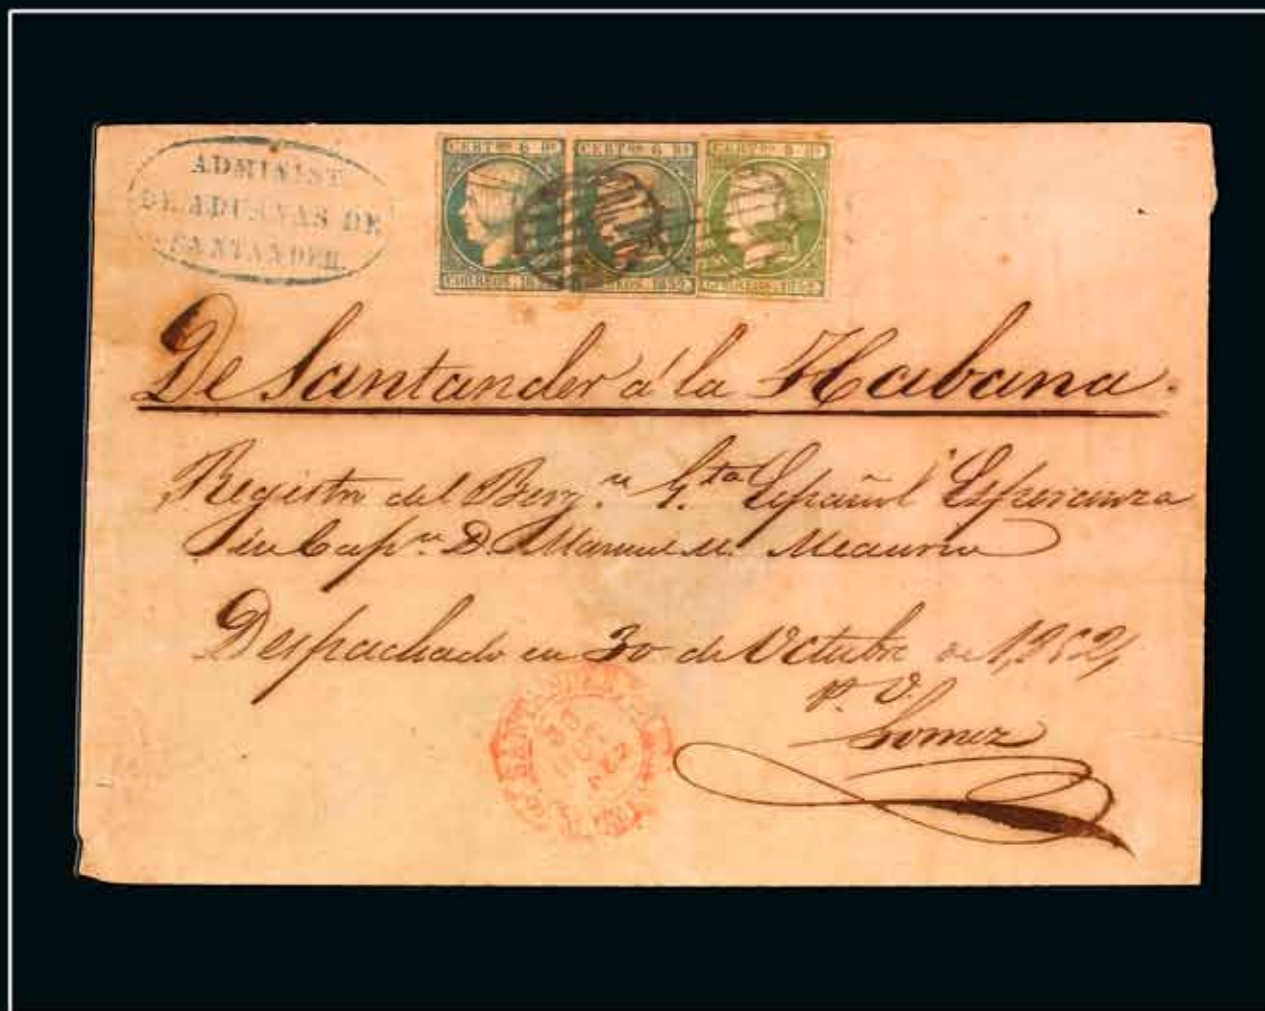 ADMINIST
DE ADUANAS DE
SANTANDER.
CERTDO 6 Rs CERTDO 6 Rs CERTDO 6 Rs
CORREOS. 1852. CORREOS. 1852.
De Santander á la Habana.
Registro del Berg.n G.ta Español Esperanza
su Cap.n D. Manuel M.
Despachado en 30 de Octubre de 1,852,
P. V.
Gomez
30
OCT
852